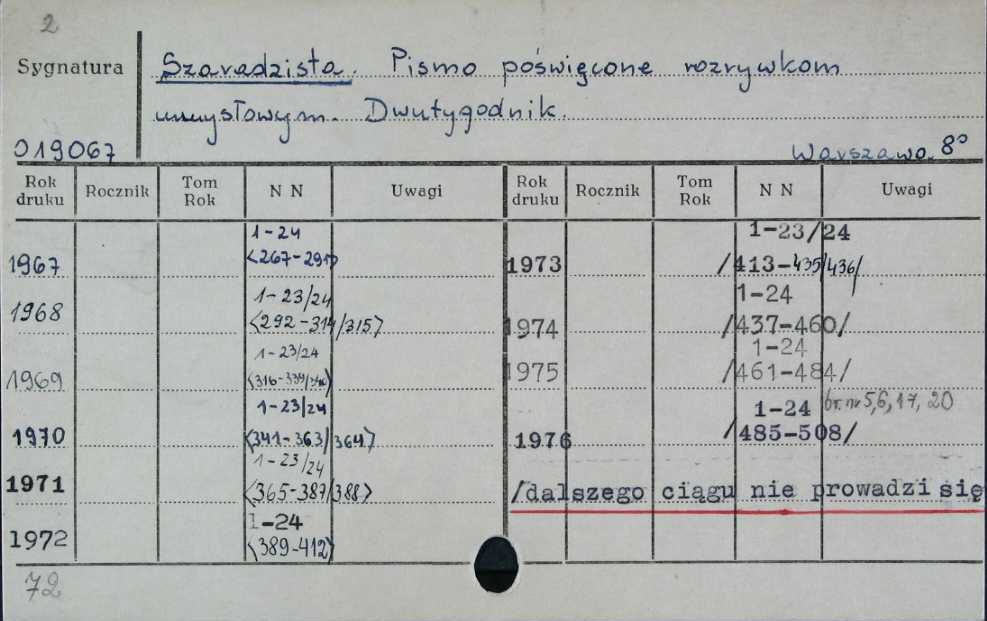 2
Sygnatura
Szaradzista. Pismo poświęcone rozrywkom
umysłowym. Dwutygodnik.
019067
Warszawa. 8°
Rok druku Rocznik Tom Rok N N Uwagi Rok druku Rocznik Tom Rok N N Uwagi
1-24
1967 <267-291>
1968 1-23/24
<292-314/315>
1-23/24
1969 <316-339/340>
1-23/24
1970 <341-363/364>
1-23/24
1971 <365-387/388>
1-24
1972 <389-412>
1-23/24
1973 /413-435/436/
1-24
1974 /437-460/
1-24
1975 /461-484/
1-24 br. nr 5,6,17,20
1976 /485-508/
/dalszego ciągu nie prowadzi się
72